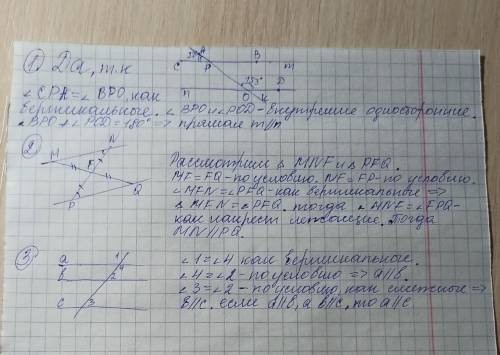 1) Да, т.к
∠CPA=∠BPO, как
вертикальные. ∠BPO и ∠POD - внутренние односторонние.
∠BPO+∠POD=180° => прямая m//n
A
C P B m
n O D
K
2
Рассмотрим △ MNF и △ PFQ.
MF=FQ - по условию. NF=FP - по условию.
∠MFN=∠PFQ - как вертикальные =>
△ MFN=△PFQ. тогда ∠MNF=∠FPQ -
как накрест лежащие. Тогда
MN//PQ.
M N
F
P Q
3
∠1=∠4 как вертикальные.
∠4=∠2 - по условию => a//b.
∠3=∠2 - по условию, как смежные =>
b//c. если a//b, а b//c, то a//c
a 1
4
b 2
c 3